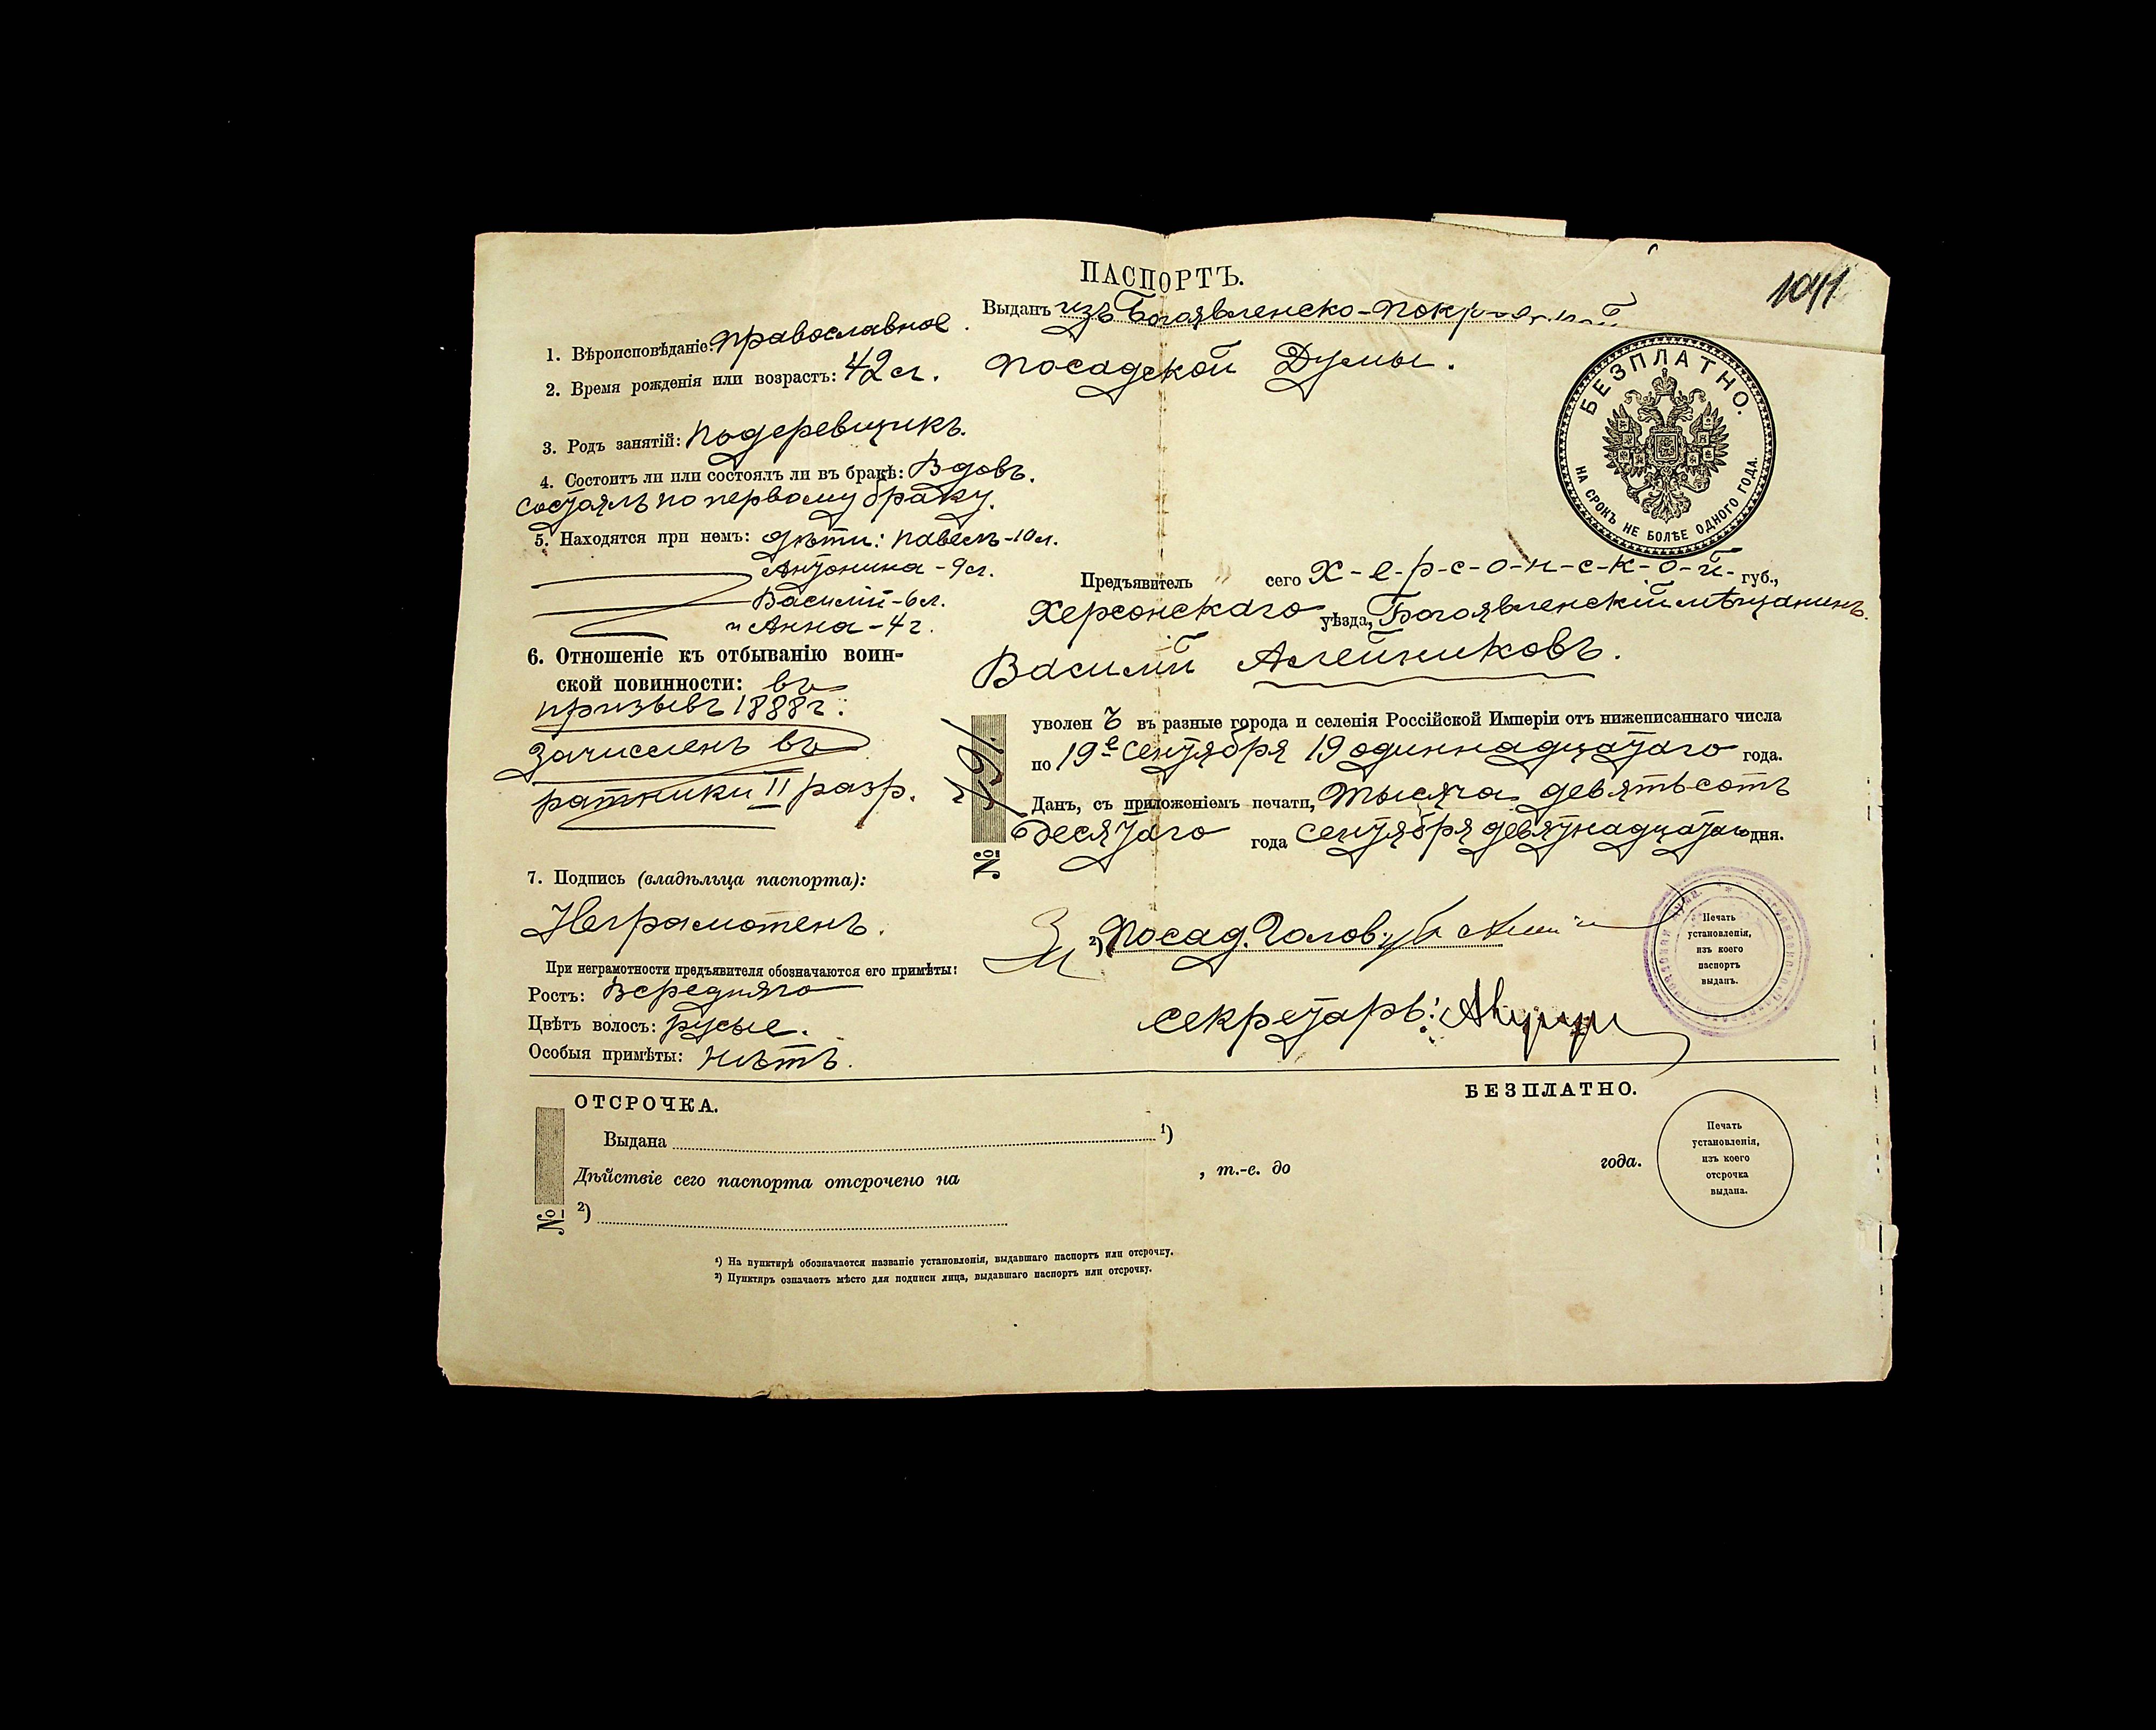 ПАСПОРТЪ.
1041
Выданъ изъ Богоявленско-Покровской
Посадской Думы.
БЕЗПЛАТНО.
НА СРОКЪ НЕ БОЛѢЕ ОДНОГО ГОДА.
1. Вѣроисповѣданіе: православное.
2. Время рожденія или возрастъ: 42 л.
3. Родъ занятій: Подеревщикъ.
4. Состоитъ ли или состоялъ ли въ бракѣ: Вдовъ.
состоялъ по первому браку.
5. Находятся при немъ: дѣти: Павелъ-10 л.
Антонина-9 л.
Василій-6 л.
и Анна-4 г.
6. Отношеніе къ отбыванію воин-
ской повинности: въ
призывъ 1888 г.
зачисленъ въ
ратники II разр.
7. Подпись (владѣльца паспорта):
Неграмотенъ.
При неграмотности предъявителя обозначаются его примѣты:
Ростъ: Средняго
Цвѣтъ волосъ: русые.
Особыя примѣты: нѣтъ.
Предъявитель " сего Х-е-р-с-о-н-с-к-о-й губ.,
Херсонскаго уѣзда, Богоявленскій мѣщанинъ
Василій Алейниковъ.
уволенъ въ разные города и селенія Россійской Имперіи отъ нижеписаннаго числа
по 19е Сентября 19 одиннадцатаго года.
Данъ, съ приложеніемъ печати, Тысяча девятьсотъ
десятаго года Сентября девятнадцатаго дня.
№ 491
За 2) Посад. Голов.
Секретарь:
Печать
установленія,
изъ коего
паспортъ
выданъ.
ОТСРОЧКА.
БЕЗПЛАТНО.
Выдана 1)
Дѣйствіе сего паспорта отсрочено на , т.-е. до года.
№
2)
Печать
установленія,
изъ коего
отсрочка
выдана.
1) На пунктирѣ обозначается названіе установленія, выдавшаго паспортъ или отсрочку.
2) Пунктиръ означаетъ мѣсто для подписи лица, выдавшаго паспортъ или отсрочку.